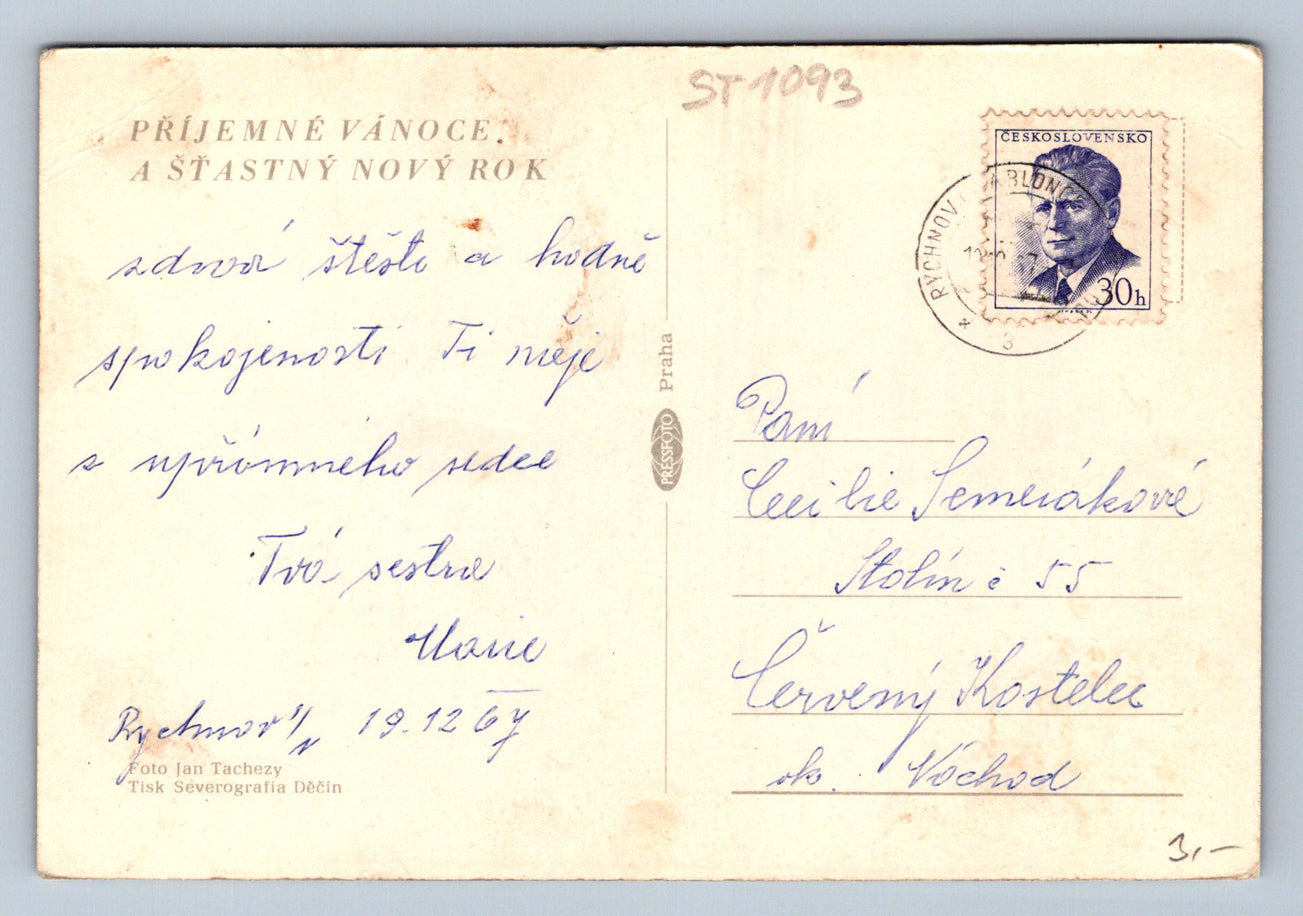 ST 1093
PŘÍJEMNÉ VÁNOCE
A ŠŤASTNÝ NOVÝ ROK
zdraví štěstí a hodně
spokojenosti Ti přeje
z upřímného srdce
Tvá sestra
Marie
Rychnov 19.12 67
Foto Jan Tachezy
Tisk Severografia Děčín
PRESSFOTO Praha
ČESKOSLOVENSKO
30h
RYCHNOV
3
Paní
Cecilie Semerákové
Stolín č 55
Červený Kostelec
ok. Náchod
3,-